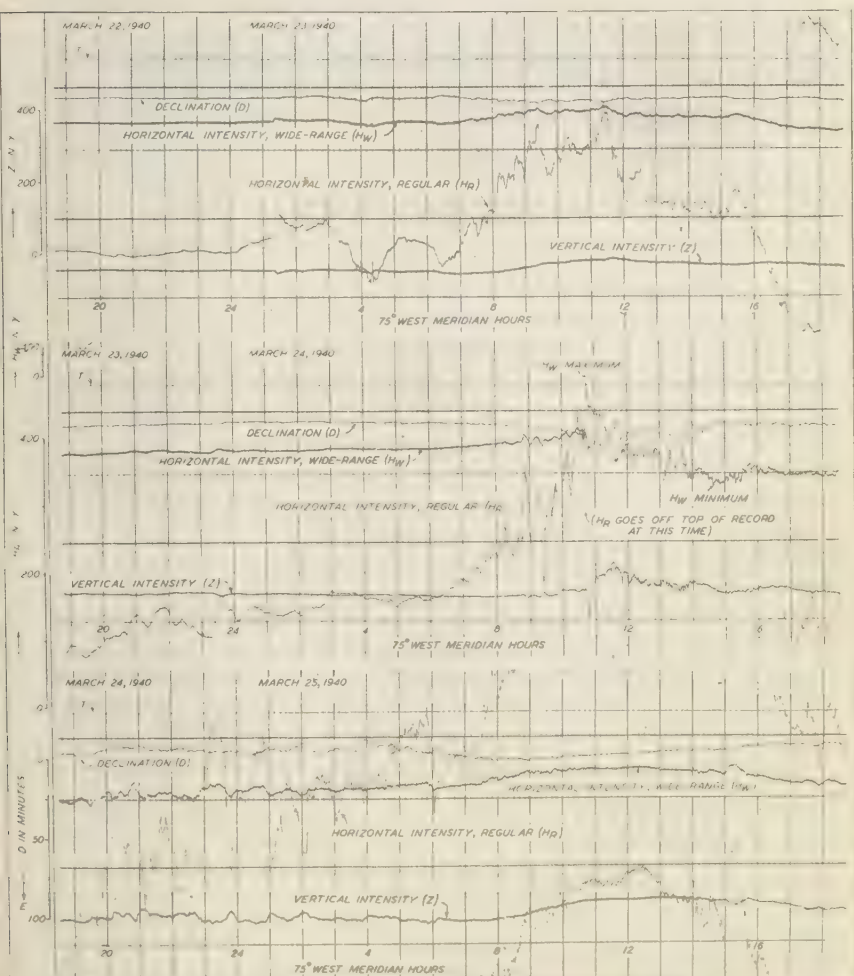 MARCH 22, 1940
MARCH 23, 1940
DECLINATION (D)
400
HORIZONTAL INTENSITY, WIDE-RANGE (HW)
Z IN γ
200
HORIZONTAL INTENSITY, REGULAR (HR)
VERTICAL INTENSITY (Z)
0
20
24
4
8
12
75° WEST MERIDIAN HOURS
MARCH 23, 1940
MARCH 24, 1940
0
HW MAXIMUM
DECLINATION (D)
400
HORIZONTAL INTENSITY, WIDE-RANGE (HW)
HW MINIMUM
HORIZONTAL INTENSITY, REGULAR (HR)
(HR GOES OFF TOP OF RECORD
AT THIS TIME)
200
VERTICAL INTENSITY (Z)
20
24
4
8
12
75° WEST MERIDIAN HOURS
MARCH 24, 1940
MARCH 25, 1940
0
DECLINATION (D)
HORIZONTAL INTENSITY, WIDE RANGE (HW)
D IN MINUTES
50
HORIZONTAL INTENSITY, REGULAR (HR)
E
100
VERTICAL INTENSITY (Z)
20
24
4
8
12
16
75° WEST MERIDIAN HOURS